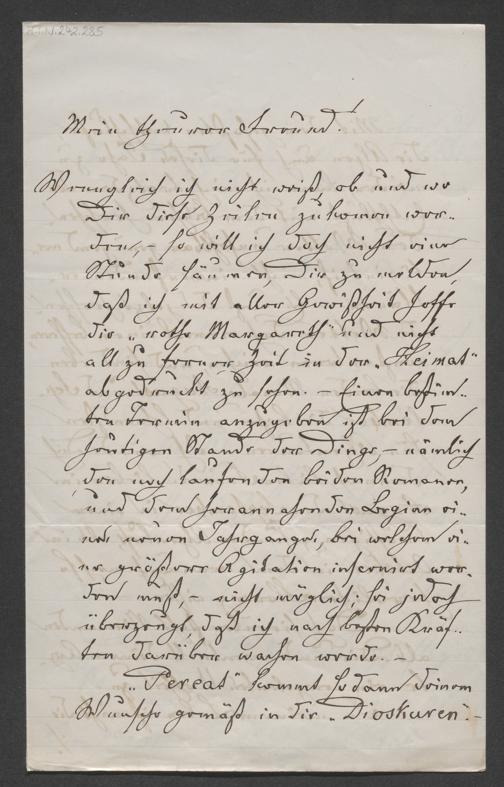 Mein theurer Freund!
Wenngleich ich nicht weiß, ob und wo
Dir diese Zeilen zukomen wer-
den, – so will ich doch nicht eine
Stunde säumen, Dir zu melden,
daß ich mit aller Gewißheit hoffe
die „rothe Margareth“ und nicht
all zu ferner Zeit in der „Heimat“
abgedruckt zu sehen. – Einen bestim-
ten Termin anzugeben ist bei dem
heutigen Stande der Dinge, – nämlich
den noch laufenden beiden Romanen,
und dem herannahenden Begian ei-
nes neuen Jahrganges, bei welchem ei-
ne größere Agitation insenirt wer-
den muß, – nicht möglich; sei jedoch
überzeugt, daß ich nach besten Kräf-
ten darüber wachen werde. –
„Pereat“ kommt sodann deinem
Wunsche gemäß in die „Dioskuren“. –